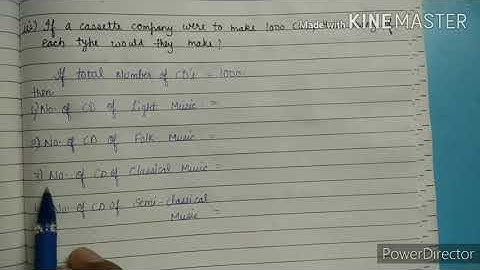 iii) If a cassette company were to make 1000
Made with KINEMASTER
each type would they make?
If total Number of CD's = 1000
then
1) No. of CD of Light Music =
2) No. of CD of Folk Music =
3) No. of CD of Classical Music =
No. of CD of Semi-classical Music =
PowerDirector